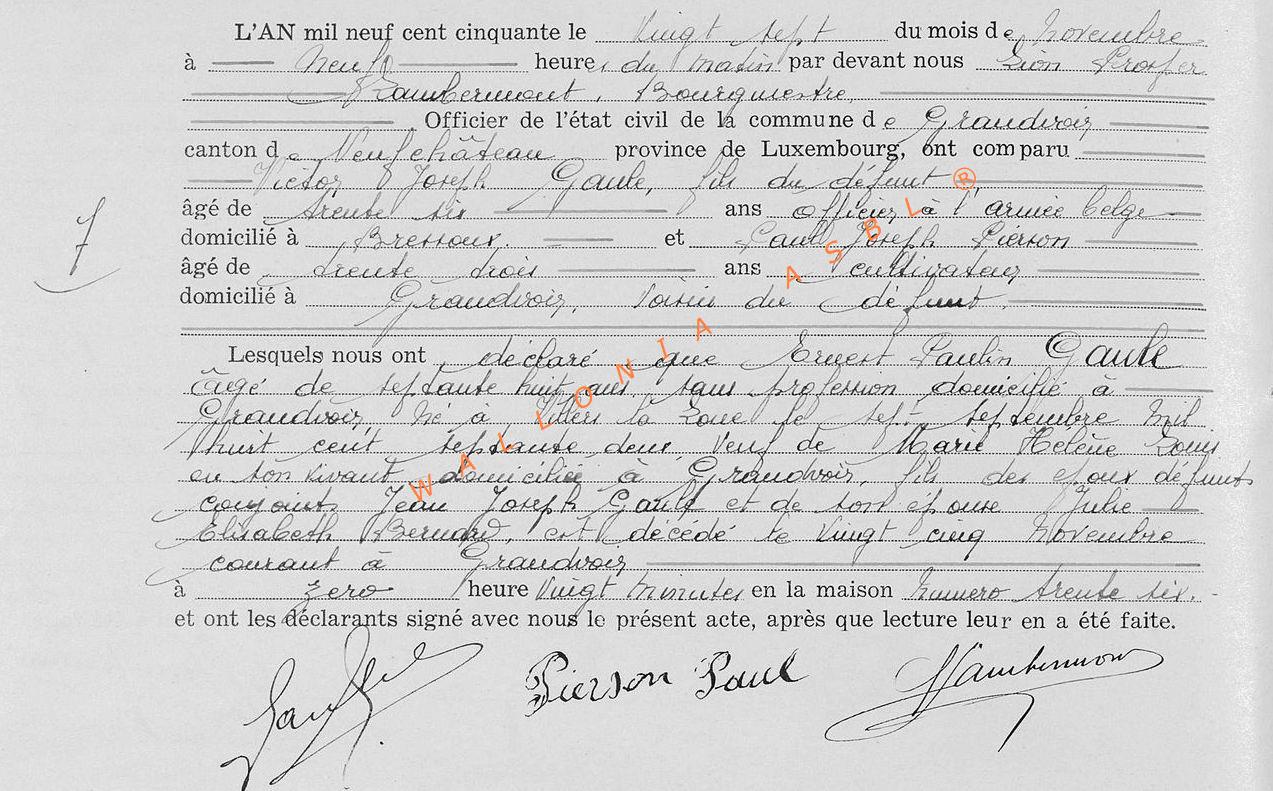 L'AN mil neuf cent cinquante le Vingt sept du mois de Novembre
à Neuf heures du matin par devant nous Léon Prosper
Rambermont, Bourgmestre,
Officier de l'état civil de la commune de Grandvoir
canton de Neufchâteau province de Luxembourg, ont comparu
Victor Joseph Gaule, fils du défunt
âgé de trente six ans officier à l'armée belge
domicilié à Bressoux. et Paul Joseph Pierson
âgé de trente trois ans cultivateur
domicilié à Grandvoir, Voisin du défunt.
Lesquels nous ont déclaré que Ernest Paulin Gaule
âgé de septante huit ans, sans profession, domicilié à
Grandvoir, né à Villers la Loue le sept septembre mil
huit cent septante deux, Veuf de Marie Hélène Louis
en son vivant domiciliée à Grandvoir, fils des époux défunts
conjoints Jean Joseph Gaule et de son épouse Julie
Elisabeth Bernard, est décédé le Vingt cinq Novembre
courant à Grandvoir
à zero heure Vingt minutes en la maison numero trente six.
et ont les déclarants signé avec nous le présent acte, après que lecture leur en a été faite.
Pierson Paul
WALLONIA ASBL ®